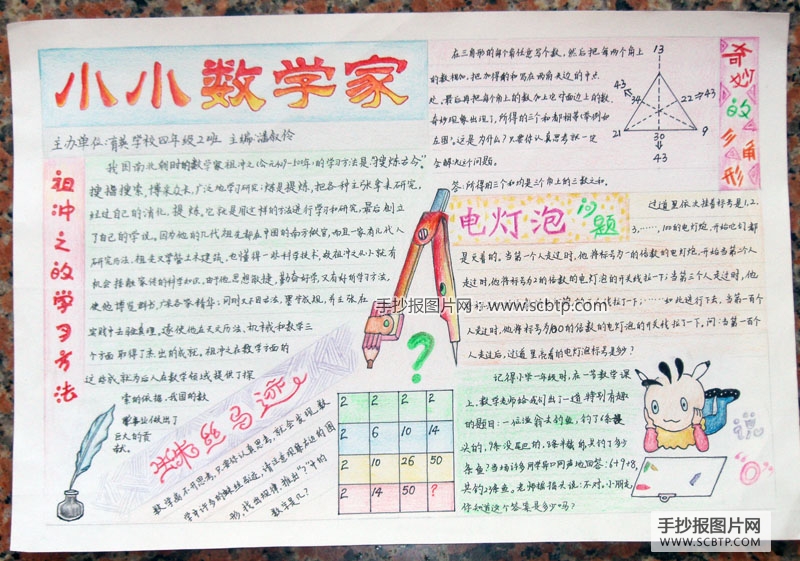 小小数学家
主办单位:清英学校四年级2班 主编:潘叙伶
祖冲之的学习方法
我国南北朝时的数学家祖冲之(公元429—500年)的学习方法是:“搜炼古今”。
搜指搜索,博采众长,广泛地学习研究;炼是提炼,把各种主张拿来研究,
经过自己的消化,提炼。它就是用这样的方法进行学习和研究,最后创立
了自己的学说。因为他的几代祖先都在中国的南方做官,而且一家有几代人
研究历法,祖先又掌管土木建筑,也懂得一些科学技术,故祖冲之从小就有
机会接触家传的科学知识。由于他思想敏捷,勤奋好学,又有好的学习方法,
使他博览群书,广采各家精华;同时又不因古法,墨守成规,并主张在
实践中去验真理。
个方面取得了杰出的成就。祖冲之在数学方面的
这些成就为后人在数学领域提供了探
索的依据,我国的数
学事业做出了
巨大的贡
献。
在三角形的每个角任意写个数,然后把每两个角上
的数相加,把加得的和写在两角夹边的中点
处,最后再把每个角上的数加上它对面边上的数,
奇妙现象出现了,所得的三个和都相等(举例如
左图)。这是为什么?只要你认真思考就一定
会解决这个问题。
答:所得的三个和均是三个角上的三数之和。
13
43
34
22→43
21
30
9
43
奇妙的三角形
电灯泡问题
过道里依次挂着标号是1,2,
3,……,100的电灯泡,开始它们都
是灭着的。当第一个人走过时,他将标号为一的倍数的电灯泡,开始当第二个人
走过时,他将标号为2的倍数的电灯泡的开关线拉一下;当第三个人走过时,他
拉一下;……如此进行下去,当第一百个
人走过时,他将标号为100的倍数的电灯泡的开关线拉了一下。问:当第一百个
人走过后,过道里亮着的电灯泡标号是多少?
手抄报图片网 - www.scbtp.com
蛛丝马迹
数学离不开思考,只要你认真思考,就会发现,数
学中许多的蛛丝马迹,请注意观察右边的图
形,找出规律,推出“?”中的
数字是几?
?
2 2 2 2
2 6 10 14
2 10 26 50
2 14 50 ?
记得小学一年级时,在一节数学课
上,数学老师给我们出了一道特别有趣
的题目:一位渔翁去钓鱼,钓了6条没
头的,9条没尾巴的,8条半截的,共钓了多少
条鱼?当场许多同学异口同声地回答:6+9+8,
共钓23条鱼。老师摇指头说:不对。小朋友,
你知道这个答案是多少吗?
说“0”
手抄报图片网
WWW.SCBTP.COM